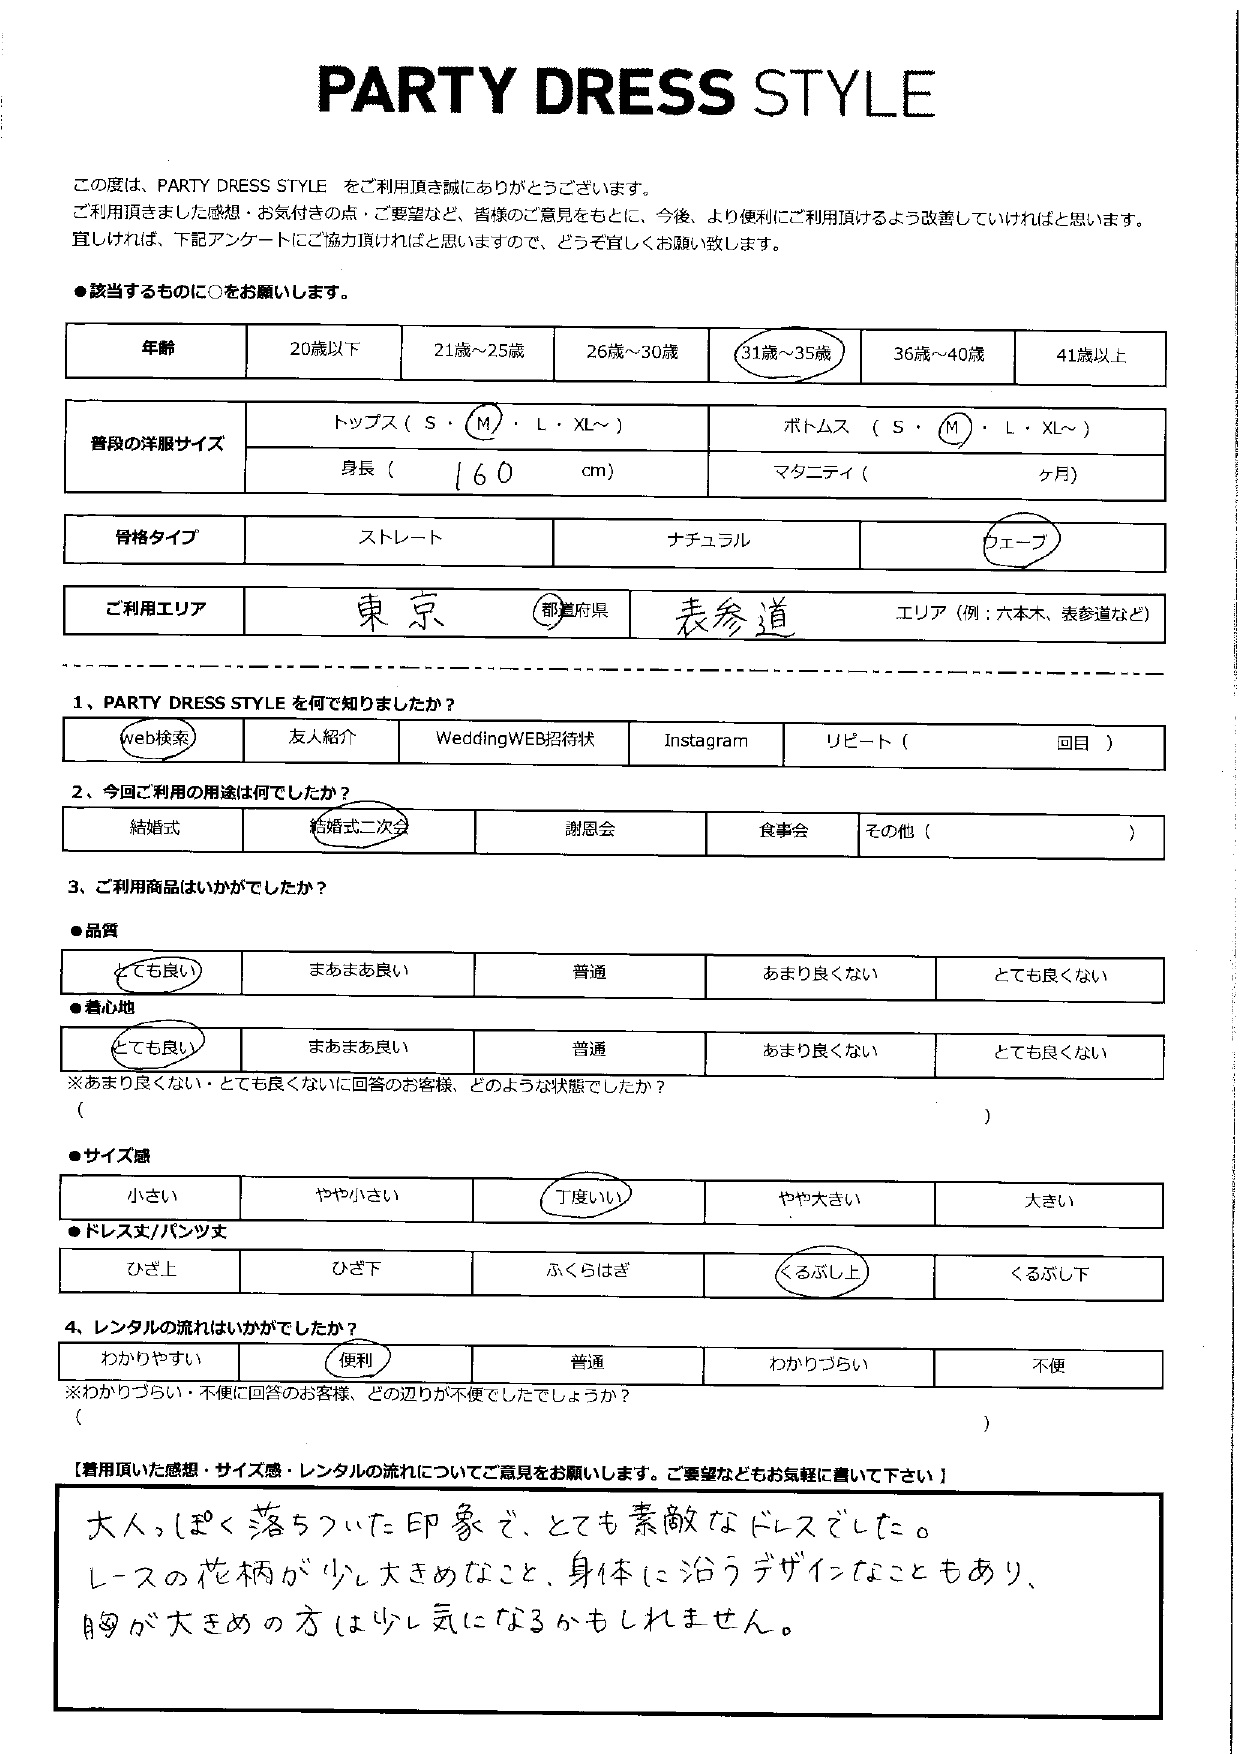 PARTY DRESS STYLE
この度は、PARTY DRESS STYLE をご利用頂き誠にありがとうございます。
ご利用頂きました感想・お気付きの点・ご要望など、皆様のご意見をもとに、今後、より便利にご利用頂けるよう改善していければと思います。
宜しければ、下記アンケートにご協力頂ければと思いますので、どうぞ宜しくお願い致します。
●該当するものに○をお願いします。
年齢 20歳以下 21歳～25歳 26歳～30歳 31歳～35歳 36歳～40歳 41歳以上
普段の洋服サイズ
トップス ( S ・ M ・ L ・ XL～ ) ボトムス ( S ・ M ・ L ・ XL～ )
身長 ( 160 cm) マタニティ ( ヶ月)
骨格タイプ ストレート ナチュラル ウェーブ
ご利用エリア 東京 都道府県 表参道 エリア (例：六本木、表参道など)
1、PARTY DRESS STYLE を何で知りましたか？
web検索 友人紹介 WeddingWEB招待状 Instagram リピート ( 回目 )
2、今回ご利用の用途は何でしたか？
結婚式 結婚式二次会 謝恩会 食事会 その他 ( )
3、ご利用商品はいかがでしたか？
●品質
とても良い まあまあ良い 普通 あまり良くない とても良くない
●着心地
とても良い まあまあ良い 普通 あまり良くない とても良くない
※あまり良くない・とても良くないに回答のお客様、どのような状態でしたか？
( )
●サイズ感
小さい やや小さい 丁度いい やや大きい 大きい
●ドレス丈/パンツ丈
ひざ上 ひざ下 ふくらはぎ くるぶし上 くるぶし下
4、レンタルの流れはいかがでしたか？
わかりやすい 便利 普通 わかりづらい 不便
※わかりづらい・不便に回答のお客様、どの辺りが不便でしたでしょうか？
( )
【着用頂いた感想・サイズ感・レンタルの流れについてご意見をお願いします。ご要望などもお気軽に書いて下さい】
大人っぽく落ちついた印象で、とても素敵なドレスでした。
レースの花柄が少し大きめなこと、身体に沿うデザインなこともあり、
胸が大きめの方は少し気になるかもしれません。